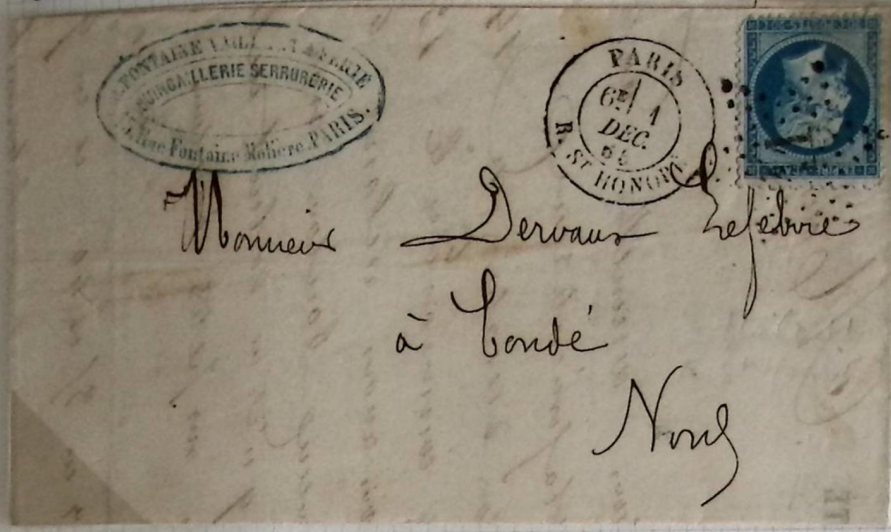 FONTAINE
QUINCAILLERIE SERRURERIE
Rue Fontaine Molière PARIS.
PARIS
6E 1
DEC.
R. ST HONORÉ
Monsieur Dervaux Lefebvre
à Condé
Nord